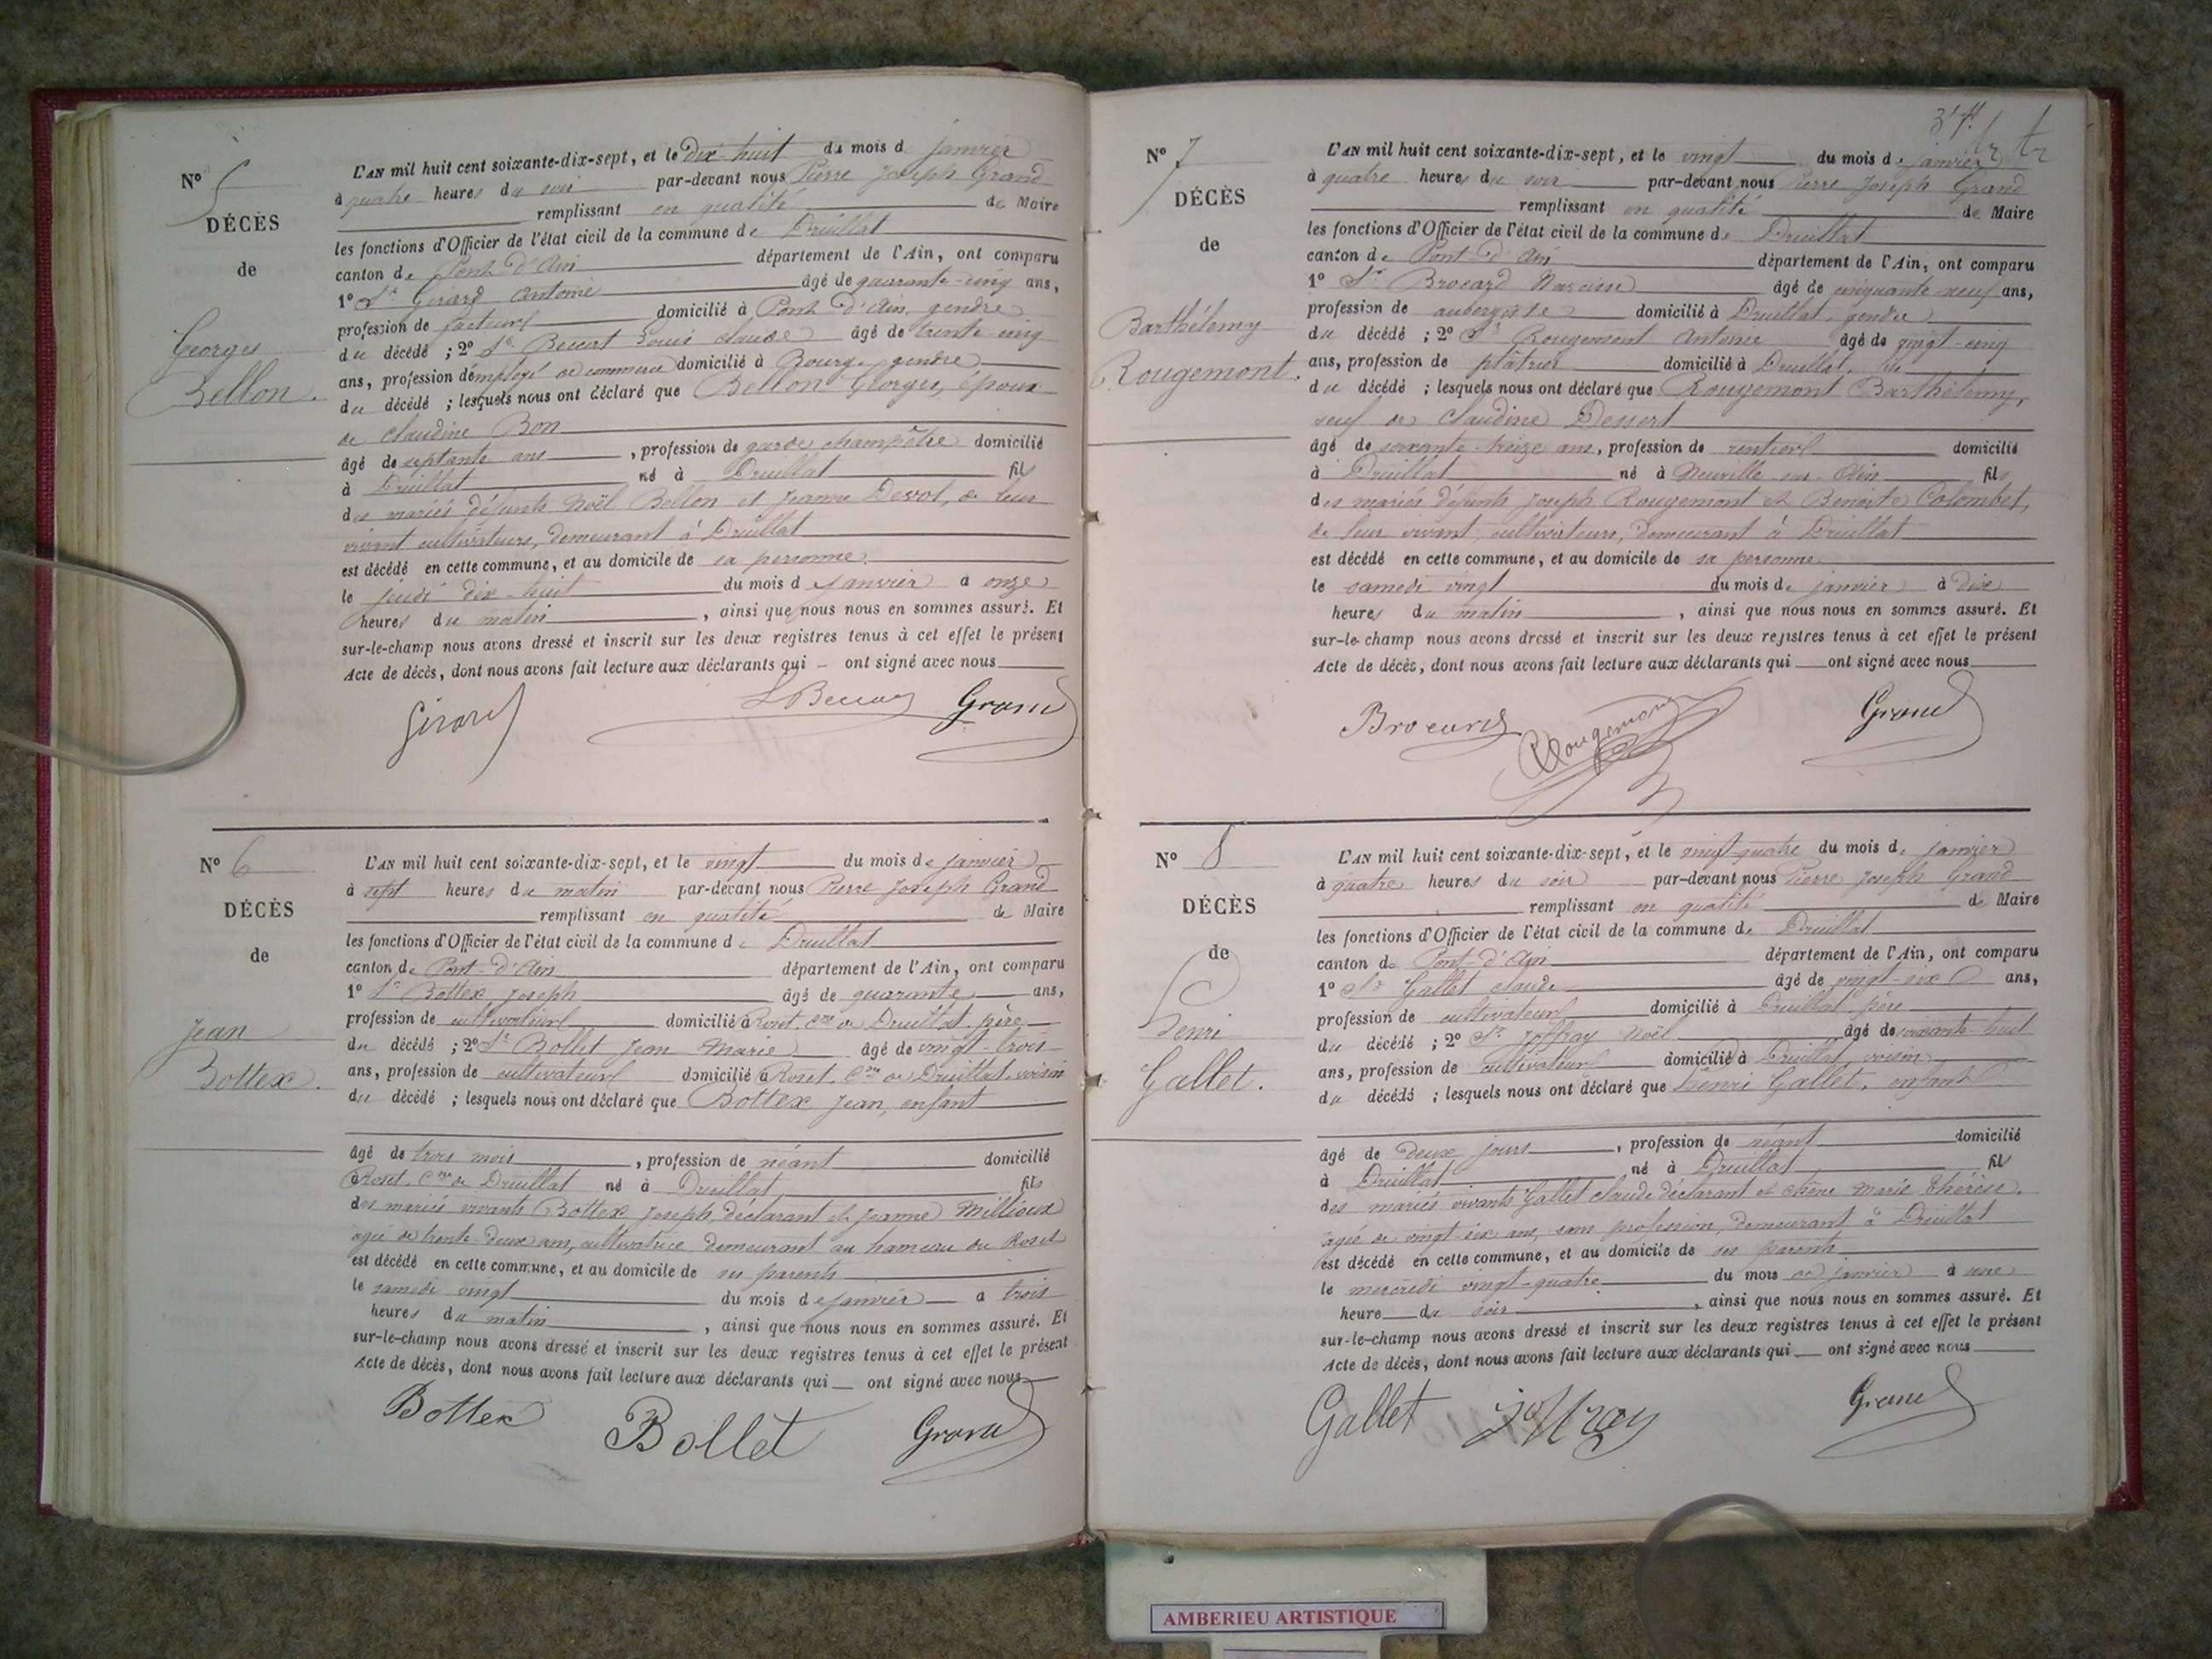 N° 5
DÉCÈS
de
Georges
Bellon.
L'AN mil huit cent soixante-dix-sept, et le dix-huit du mois d janvier
à quatre heures du soir par-devant nous Pierre Joseph Grand
remplissant en qualité de Maire
les fonctions d'Officier de l'état civil de la commune de Druillat
canton de Pont-d'Ain département de l'Ain, ont comparu
1° Sr Girard Antoine âgé de quarante-cinq ans,
profession de facteur domicilié à Pont-d'Ain, gendre
du décédé ; 2° Sr Louis Claude âgé de trente-cinq
ans, profession d'employé de commerce domicilié à Bourg, gendre
du décédé ; lesquels nous ont déclaré que Bellon Georges, époux
de Claudine Bon
âgé de septante ans , profession de garde champêtre domicilié
à Druillat né à Druillat fils
des mariés défunts Noël Bellon et Jeanne de leur
vivant cultivateurs, demeurant à Druillat
est décédé en cette commune, et au domicile de sa personne
le jeudi dix-huit du mois d janvier à onze
heures du matin , ainsi que nous nous en sommes assuré. Et
sur-le-champ nous avons dressé et inscrit sur les deux registres tenus à cet effet le présent
Acte de décès, dont nous avons fait lecture aux déclarants qui – ont signé avec nous
Girard Grand
N° 6
DÉCÈS
de
Jean
Bottex.
L'AN mil huit cent soixante-dix-sept, et le vingt du mois de janvier
à sept heures du matin par-devant nous Pierre Joseph Grand
remplissant en qualité de Maire
les fonctions d'Officier de l'état civil de la commune de Druillat
canton de Pont-d'Ain département de l'Ain, ont comparu
1° Sr Bottex Joseph âgé de quarante ans,
profession de cultivateur domicilié à Roset, Cne de Druillat, père
du décédé ; 2° Sr Bollet Jean Marie âgé de vingt-trois
ans, profession de cultivateur domicilié à Roset, Cne de Druillat, voisin
du décédé ; lesquels nous ont déclaré que Bottex Jean, enfant
âgé de trois mois , profession de néant domicilié
à Roset, Cne de Druillat né à Druillat fils
des mariés vivants Bottex Joseph, déclarant et Jeanne Millioux
agée de trente-deux ans, cultivatrice, demeurant au hameau du Roset
est décédé en cette commune, et au domicile de ses parents
le samedi vingt du mois de janvier à trois
heures du matin , ainsi que nous nous en sommes assuré. Et
sur-le-champ nous avons dressé et inscrit sur les deux registres tenus à cet effet le présent
Acte de décès, dont nous avons fait lecture aux déclarants qui – ont signé avec nous
Bottex Bollet Grand
N° 7
DÉCÈS
de
Barthélemy
Rougemont.
L'AN mil huit cent soixante-dix-sept, et le vingt du mois de janvier
à quatre heures du soir par-devant nous Pierre Joseph Grand
remplissant en qualité de Maire
les fonctions d'Officier de l'état civil de la commune de Druillat
canton de Pont-d'Ain département de l'Ain, ont comparu
1° Sr Brocard Narcisse âgé de cinquante-neuf ans,
profession de aubergiste domicilié à Druillat, gendre
du décédé ; 2° Sr Rougemont Antoine âgé de vingt-cinq
ans, profession de plâtrier domicilié à Druillat, fils
du décédé ; lesquels nous ont déclaré que Rougemont Barthélemy,
veuf de Claudine Dessert
âgé de soixante-treize ans, profession de rentier domicilié
à Druillat né à Neuville-sur-Ain fils
des mariés défunts Joseph Rougemont et Benoite Colombet,
de leur vivant cultivateurs, demeurant à Druillat
est décédé en cette commune, et au domicile de sa personne
le samedi vingt du mois de janvier à dix
heures du matin , ainsi que nous nous en sommes assuré. Et
sur-le-champ nous avons dressé et inscrit sur les deux registres tenus à cet effet le présent
Acte de décès, dont nous avons fait lecture aux déclarants qui – ont signé avec nous
Brocard Rougemont Grand
N° 8
DÉCÈS
de
Henri
Gallet.
L'AN mil huit cent soixante-dix-sept, et le vingt-quatre du mois de janvier
à quatre heures du soir par-devant nous Pierre Joseph Grand
remplissant en qualité de Maire
les fonctions d'Officier de l'état civil de la commune de Druillat
canton de Pont-d'Ain département de l'Ain, ont comparu
1° Sr Gallet Claude âgé de vingt-six ans,
profession de cultivateur domicilié à Druillat père
du décédé ; 2° Sr Joffray Noël âgé de soixante-huit
ans, profession de cultivateur domicilié à Druillat, voisin
du décédé ; lesquels nous ont déclaré que Henri Gallet, enfant
âgé de deux jours , profession de néant domicilié
à Druillat né à Druillat fils
des mariés vivants Gallet Claude déclarant et Chêne Marie Thérèse,
agée de vingt-six ans, sans profession, demeurant à Druillat
est décédé en cette commune, et au domicile de ses parents
le mercredi vingt-quatre du mois de janvier à une
heure du soir , ainsi que nous nous en sommes assuré. Et
sur-le-champ nous avons dressé et inscrit sur les deux registres tenus à cet effet le présent
Acte de décès, dont nous avons fait lecture aux déclarants qui – ont signé avec nous
Gallet Joffray Grand
AMBERIEU ARTISTIQUE